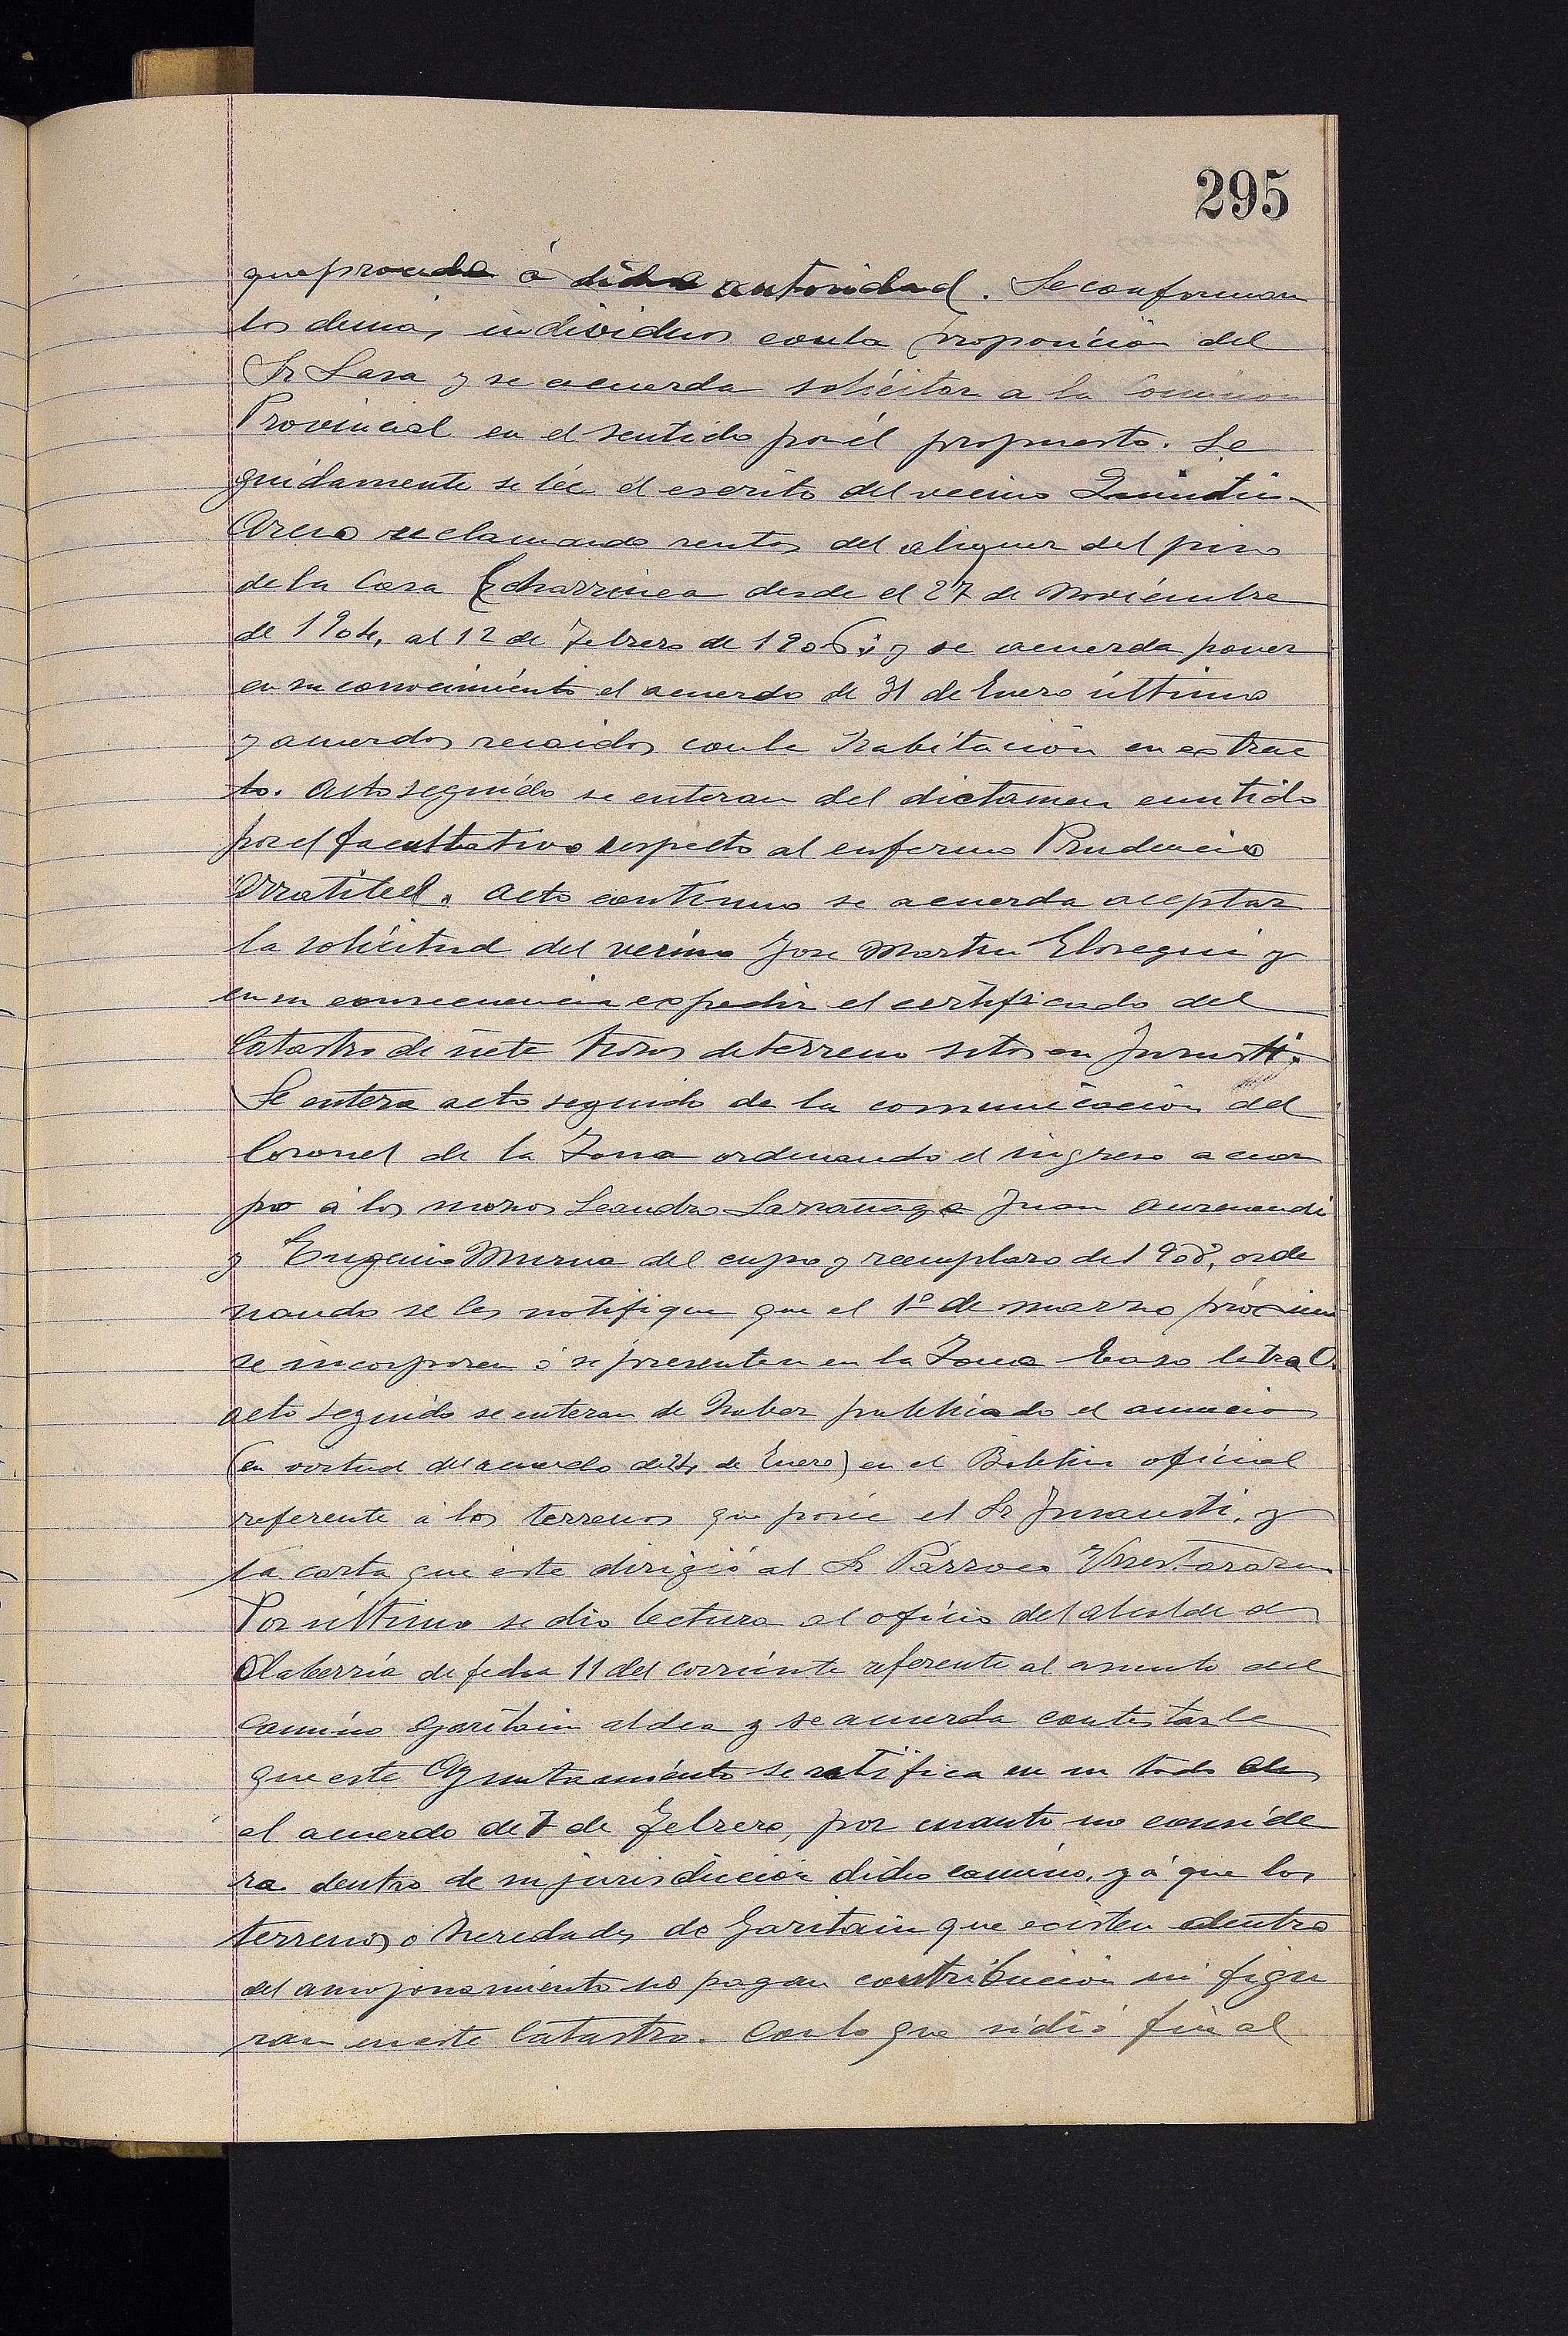 295
que proceda á dicha autoridad. Se conforman
los demás individuos con la proposición del
Sr Lasa y se acuerda solicitar a la Comision
Provincial en el sentido por él propuesto. Se
guidamente se lée el escrito del vecino Quintin
Areso reclamando rentas del alquier del piso
de la Casa Echarrinea desde el 27 de Noviembre
de 1904, al 12 de Febrero de 1906; y se acuerda poner
en su conocimiento el acuerdo de 31 de Enero último
y acuerdos recaidos con la habitación en extrac
to. Acto seguido se enteran del dictamen emitido
por el facultativo respecto al enfermo Prudencio
Arratibel. Acto continuo se acuerda aceptar
la solicitud del vecino Jose Martin Elosegui y
en su consecuencia expedir el certificado del
Catastro de siete trozos de terreno sitos en
Se entera acto seguido de la comunicación del
Coronel de la Zona ordenando el ingreso a cuer
po á los mozos Leandro Larrañaga Juan Auzmendi
y Eugenio Murua del cupo y reemplazo de 1908, orde
nando se les notifique que el 1º de marzo próximo
se incorporen ó se presenten en la Zona letra C.
Acto seguido se enteran de haber publicado el anuncio
(en virtud del acuerdo de 24 de Enero) en el Boletin oficial
referente á los terrenos que posée el Sr Insausti, y
la carta que éste dirigió al Sr Párroco Urrestarazu.
Por último se dio lectura al oficio del alcalde de
Olaberria de fecha 11 del corriente referente al asunto del
camino Garitain aldea y se acuerda contestarle
que este Ayuntamiento se ratifica en su todo
el acuerdo de 7 de Febrero, por cuanto no conside
ra dentro de su jurisdicción dicho camino, yá que los
terrenos o heredades de Garitain que existen dentro
del amojonamiento no pagan contribución ni figu
ran en este Catastro. Con lo que se dió fin al